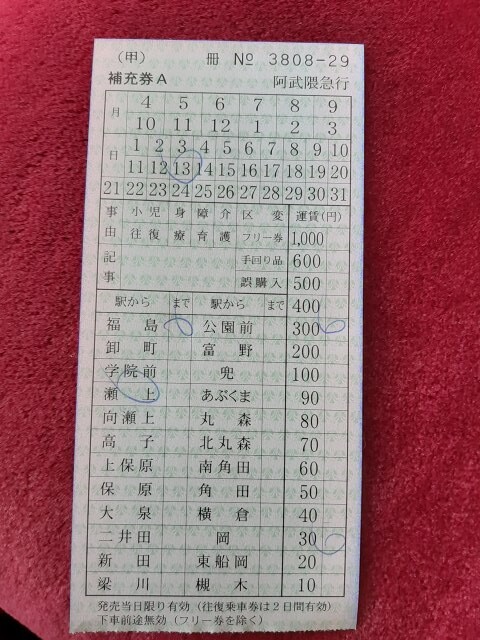 (甲) 冊 № 3808-29
補充券A 阿武隈急行
月 4 5 6 7 8 9
10 11 12 1 2 3
日 1 2 3 4 5 6 7 8 9 10
11 12 13 14 15 16 17 18 19 20
21 22 23 24 25 26 27 28 29 30 31
事由 小児 身障 介 区変 運賃(円)
往復 療育 護 フリー券 1,000
記事 手回り品 600
誤購入 500
駅から まで 駅から まで 400
福島 公園前 300
卸町 富野 200
学院前 兜 100
瀬上 あぶくま 90
向瀬上 丸森 80
高子 北丸森 70
上保原 南角田 60
保原 角田 50
大泉 横倉 40
二井田 岡 30
新田 東船岡 20
梁川 槻木 10
発売当日限り有効 (往復乗車券は2日間有効)
下車前途無効 (フリー券を除く)